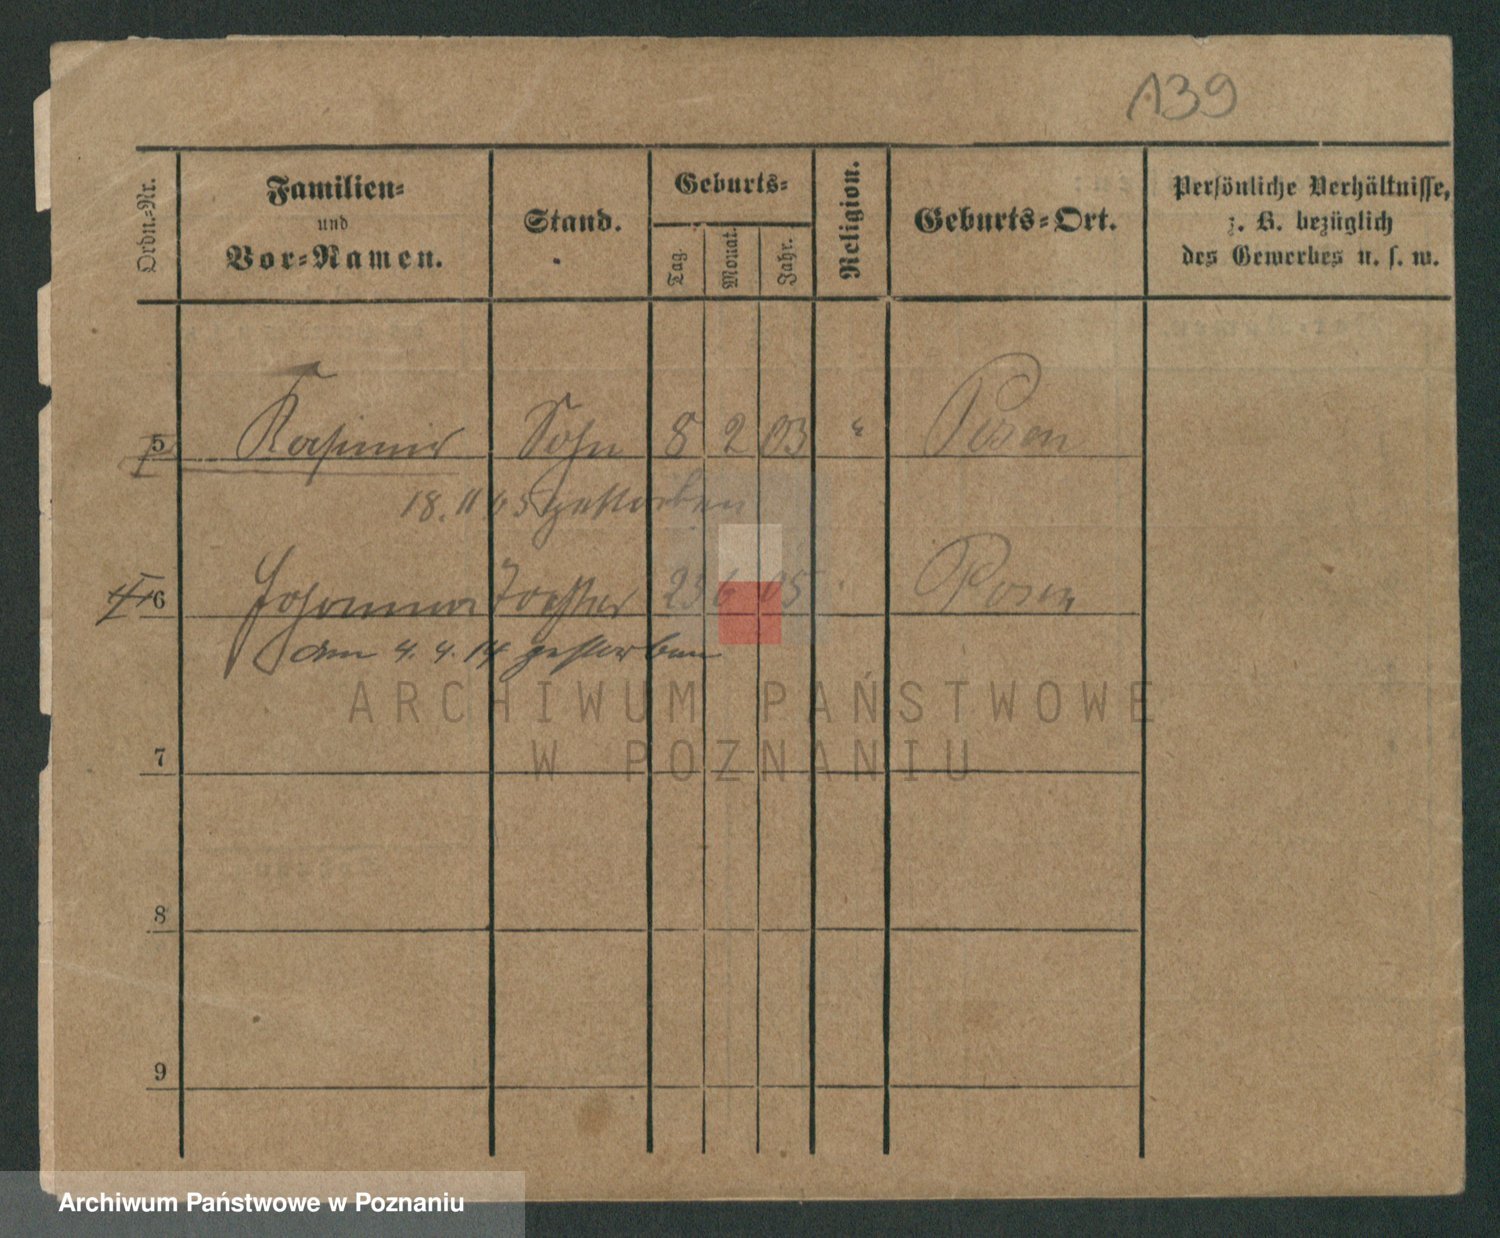 139
Ordn.-Nr.
Familien-
und
Vor-Namen.
Stand.
Geburts-
Tag.
Monat.
Jahr.
Religion.
Geburts-Ort.
Persönliche Verhältnisse,
z. B. bezüglich
des Gewerbes u. s. w.
5 Kasimir Sohn 8 2 03 " Posen
18. 11 05 gestorben
6 Johanna Tochter 23 6 05 Posen
am 4. 4. 14 gestorben
ARCHIWUM PAŃSTWOWE
W POZNANIU
7
8
9
Archiwum Państwowe w Poznaniu